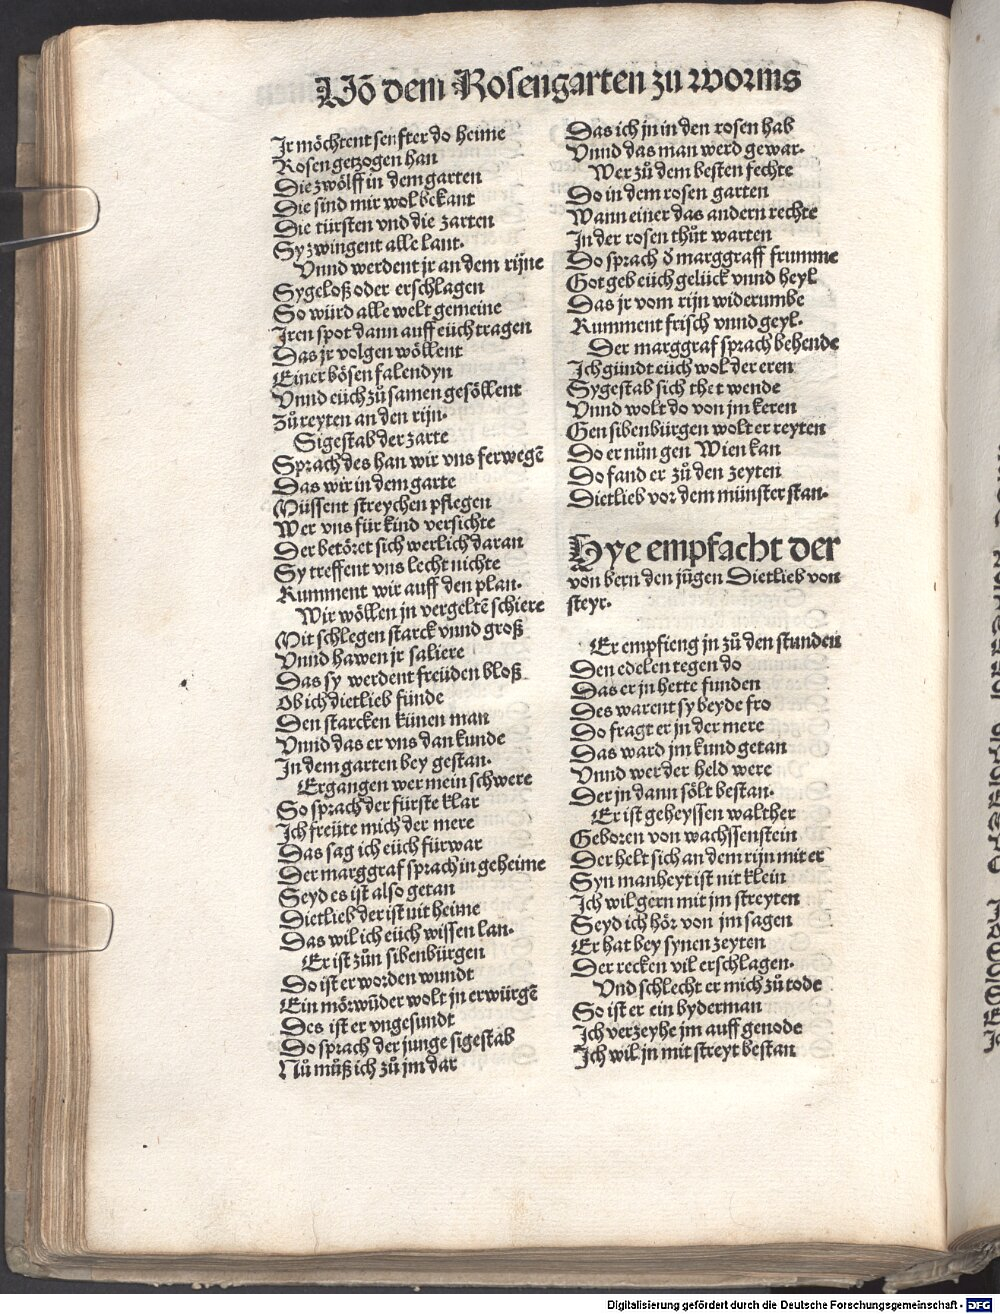 Vō dem Rosengarten zu worms
Ir möchtent senfter do heime
Rosen getzogen han
Die zwölff in dem garten
Die sind mir wol bekant
Die türsten vnd die zarten
Sy zwingent alle lant.
Vnnd werdent jr an dem rijne
Sygeloß oder erschlagen
So würd alle welt gemeine
Iren spot dann auff eüch tragen
Das jr volgen wöllent
Einer bösen falendyn
Vnnd eüch zů samen gesöllent
Zů reyten an den rijn.
Sigestab der zarte
Sprach des han wir vns ferwegē
Das wir in dem garte
Müssent streychen pflegen
Wer vns für kind versichte
Der betöret sich werlich daran
Sy treffent vns lecht nichte
Kumment wir auff den plan.
Wir wöllen jn vergeltē schiere
Mit schlegen starck vnnd groß
Vnnd hawen jr saliere
Das sy werdent freüden bloß
Ob ich dietlieb fünde
Den starcken künen man
Vnnd das er vns dan kunde
In dem garten bey gestan.
Ergangen wer mein schwere
So sprach der fürste klar
Ich freüte mich der mere
Das sag ich eüch für war
Der marggraf sprach in geheime
Seyd es ist also getan
Dietlieb der ist nit heime
Das wil ich eüch wissen lan.
Er ist zůn sibenbürgen
Do ist er worden wundt
Ein mörwūder wolt jn erwürgē
Des ist er vngesundt
Do sprach der junge sigestab
Nů můß ich zů jm dar
Das ich jn in den rosen hab
Vnnd das man werd gewar.
Wer zů dem besten fechte
Do in dem rosen garten
Wann einer das andern rechte
In der rosen thůt warten
Do sprach d̄ marggraff frumme
Got geb eüch gelück vnnd heyl
Das jr vom rijn widerumbe
Kumment frisch vnnd geyl.
Der marggraf sprach behende
Ich gündt eüch wol der eren
Sygestab sich thet wende
Vnnd wolt do von jm keren
Gen sibenbürgen wolt er reyten
Do er nůn gen Wien kan
Do fand er zů den zeyten
Dietlieb vor dem münster stan.
Hye empfacht der
von bern den jūgen Dietlieb von
steyr.
Er empfieng jn zů den stunden
Den edelen tegen do
Das er jn hette funden
Des warent sy beyde fro
Do fragt er jn der mere
Das ward jm kund getan
Vnnd wer der held were
Der jn dann sölt bestan.
Er ist geheyssen walther
Geboren von wachssenstein
Der helt sich an dem rijn mit er
Syn manheyt ist nit klein
Ich wil gern mit jm streyten
Seyd ich hör von jm sagen
Er hat bey synen zeyten
Der recken vil erschlagen.
Vnd schlecht er mich zů tode
So ist er ein byderman
Ich verzeyhe jm auff genode
Ich wil jn mit streyt bestan
Digitalisierung gefördert durch die Deutsche Forschungsgemeinschaft - DFG